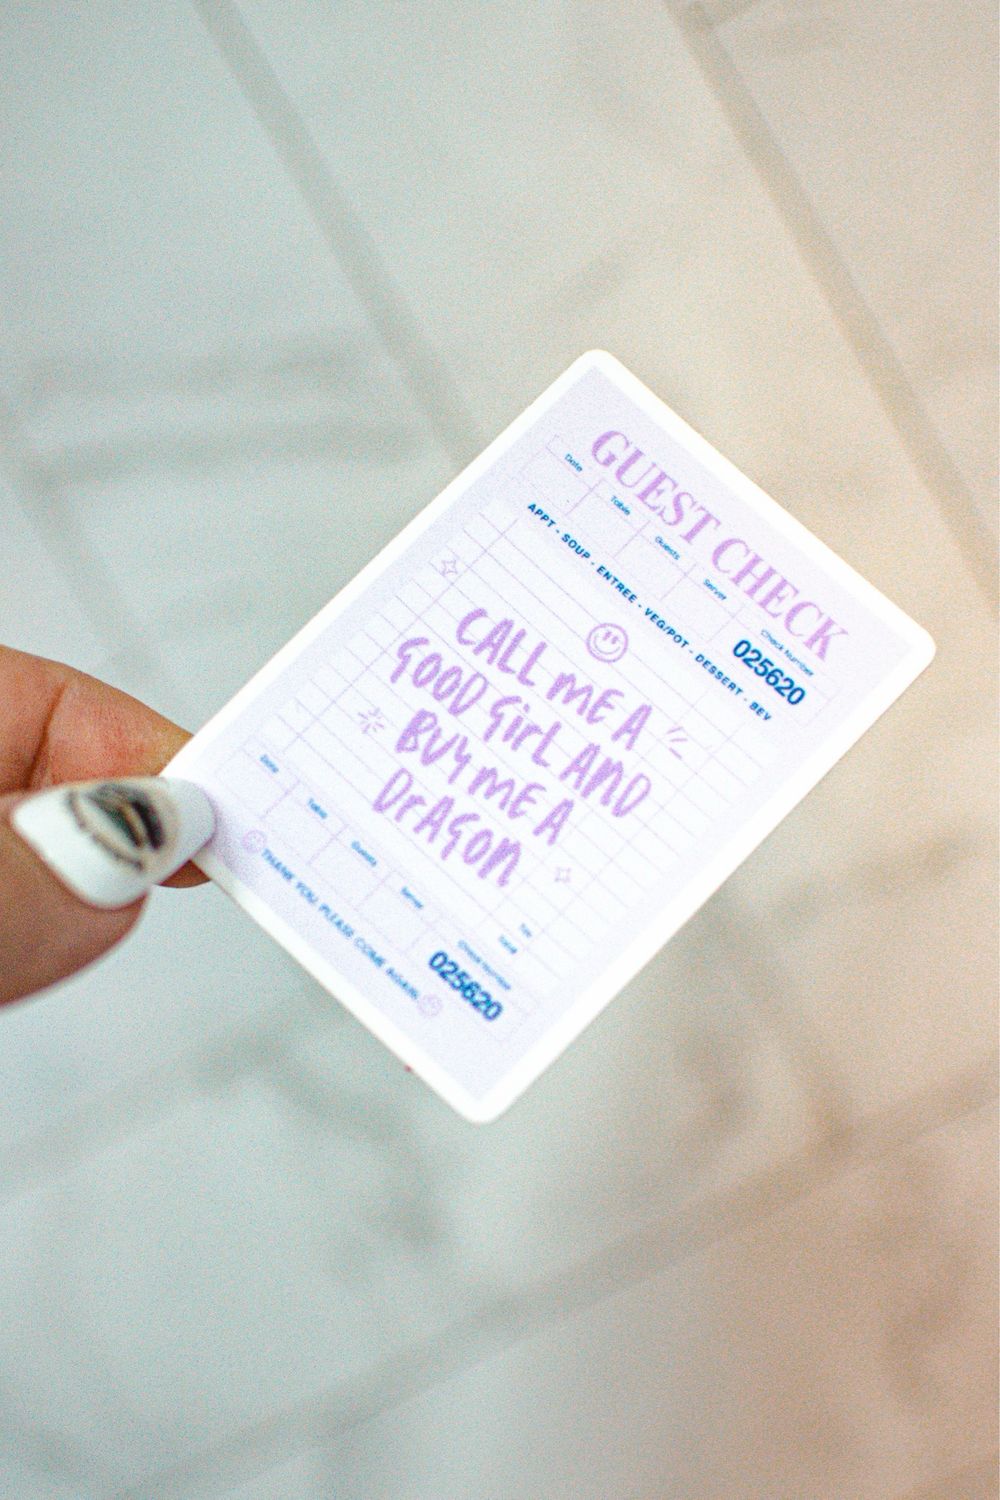 GUEST CHECK
Date Table Guests Server Check Number
025620
APPT - SOUP - ENTREE - VEG/POT - DESSERT - BEV
CALL ME A
GOOD GirL AND
BUY ME A
DrAGON
Tax
Total
Date Table Guests Server Check Number
025620
THANK YOU, PLEASE COME AGAIN